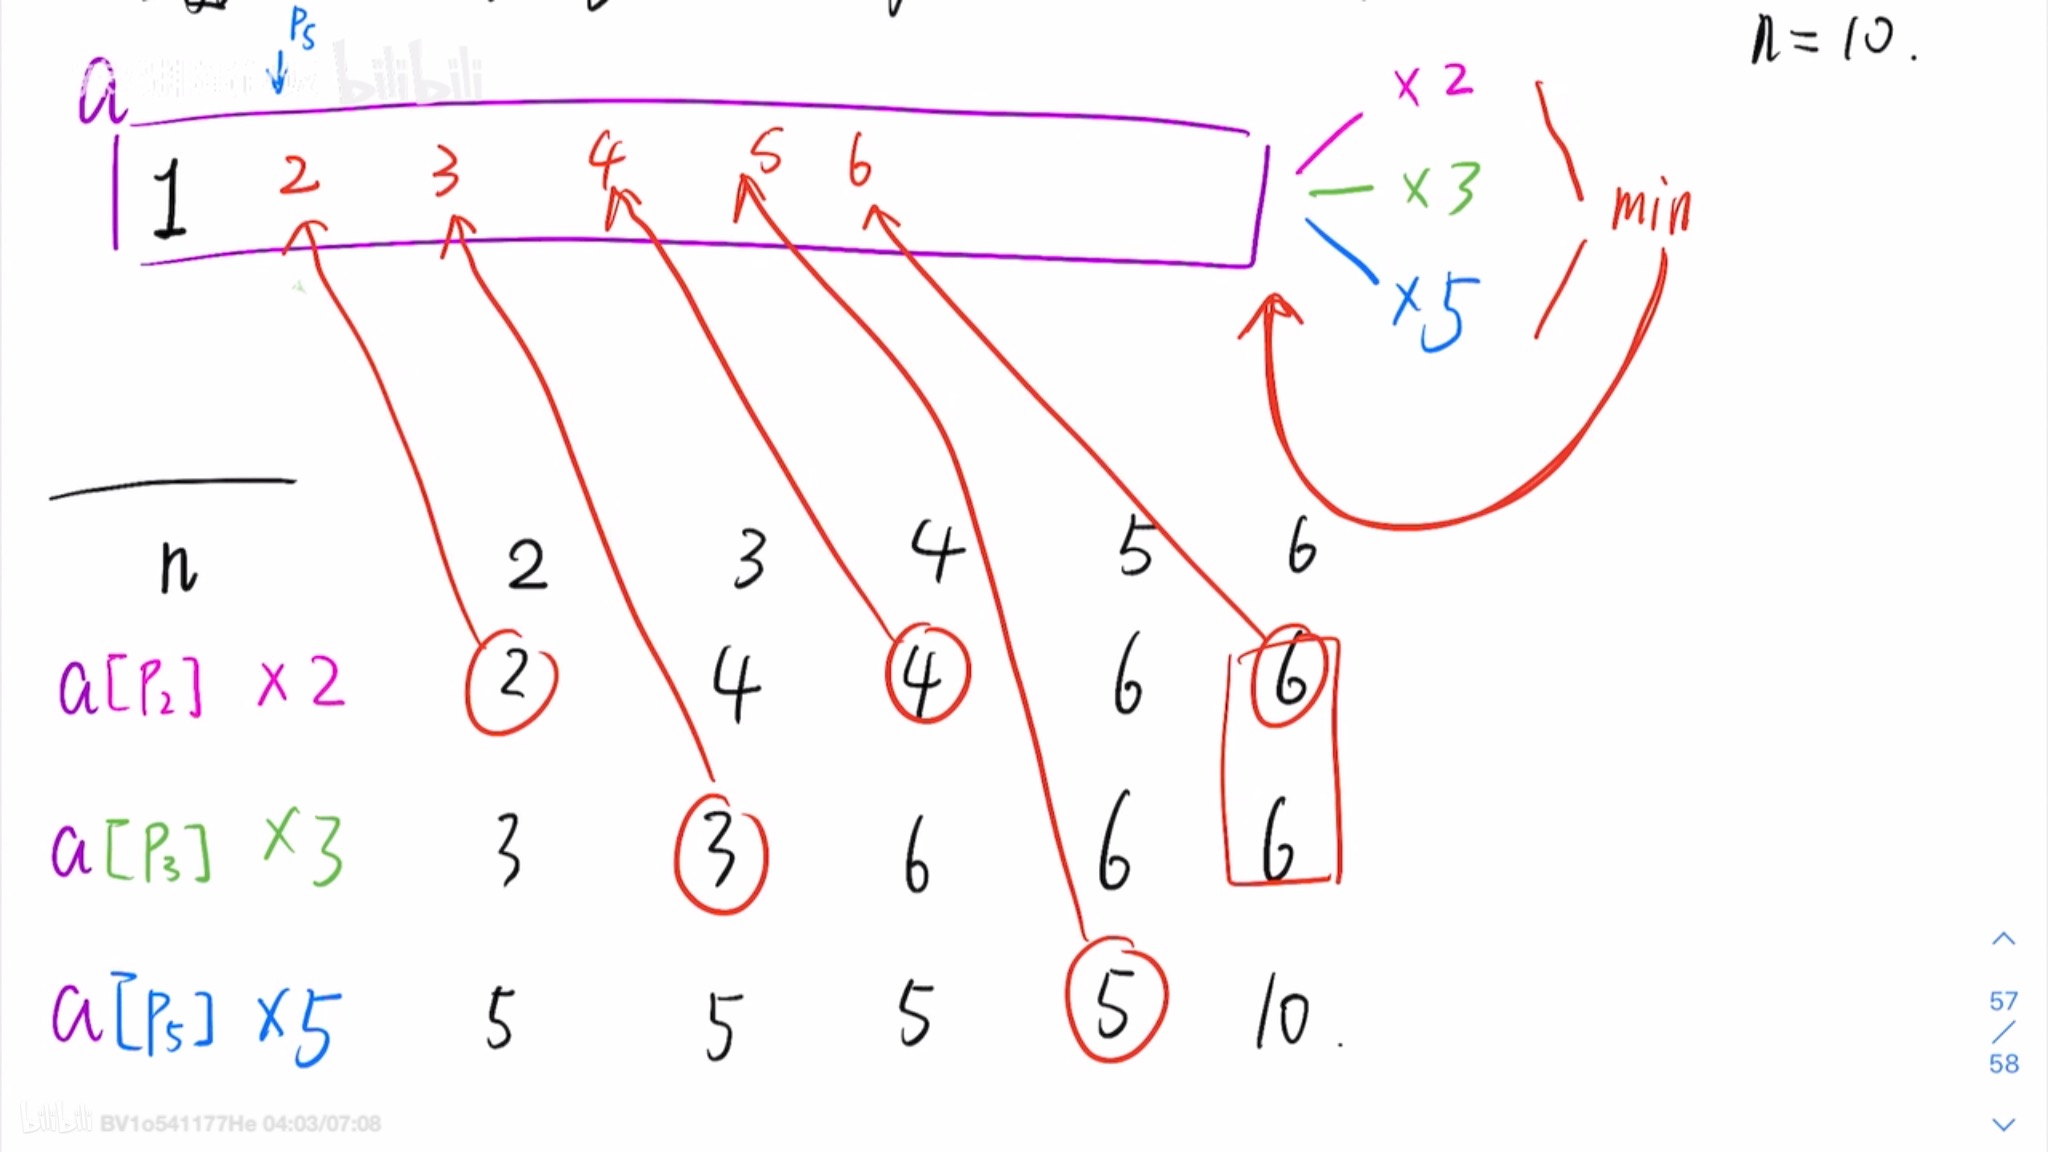 P5
n = 10.
bilibili
a
1 2 3 4 5 6
×2
×3
×5
min
n 2 3 4 5 6
a[P2] ×2 2 4 4 6 6
a[P3] ×3 3 3 6 6 6
a[P5] ×5 5 5 5 5 10.
57
/
58
bilibili BV1o541177He 04:03/07:08